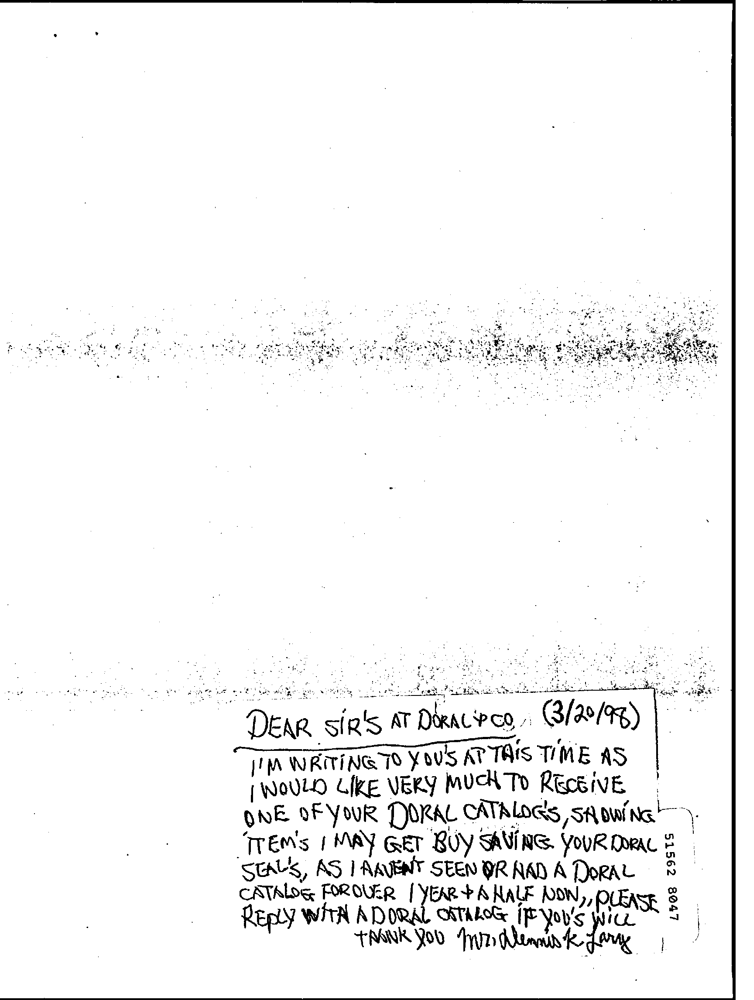 DEAR SIR'S AT DORAL & CO, (3/20/98)
I'M WRITING TO YOU'S AT THIS TIME AS
I WOULD LIKE VERY MUCH TO RECEIVE
ONE OF YOUR DORAL CATALOG'S, SHOWING
ITEM'S I MAY GET BUY SAVING YOUR DORAL
SEAL'S, AS I HAVEN'T SEEN OR HAD A DORAL
CATALOG FOR OVER 1 YEAR + A HALF NOW,, PLEASE
REPLY WITH A DORAL CATALOG IF YOU'S WILL
THANK YOU Mr. Dennis K.
51562 8047